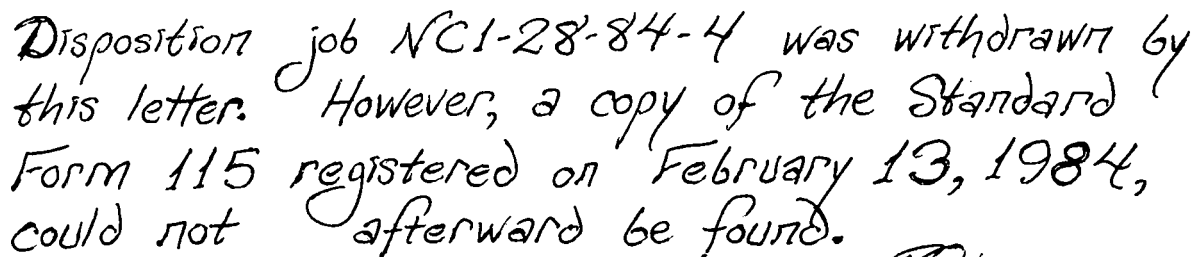 Disposition job NC1-28-84-4 was withdrawn by
this letter. However, a copy of the Standard
Form 115 registered on February 13, 1984,
could not afterward be found.